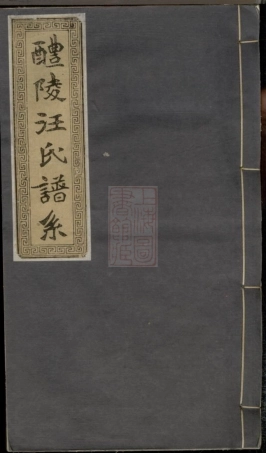 醴陵汪氏譜系
上海圖書館藏